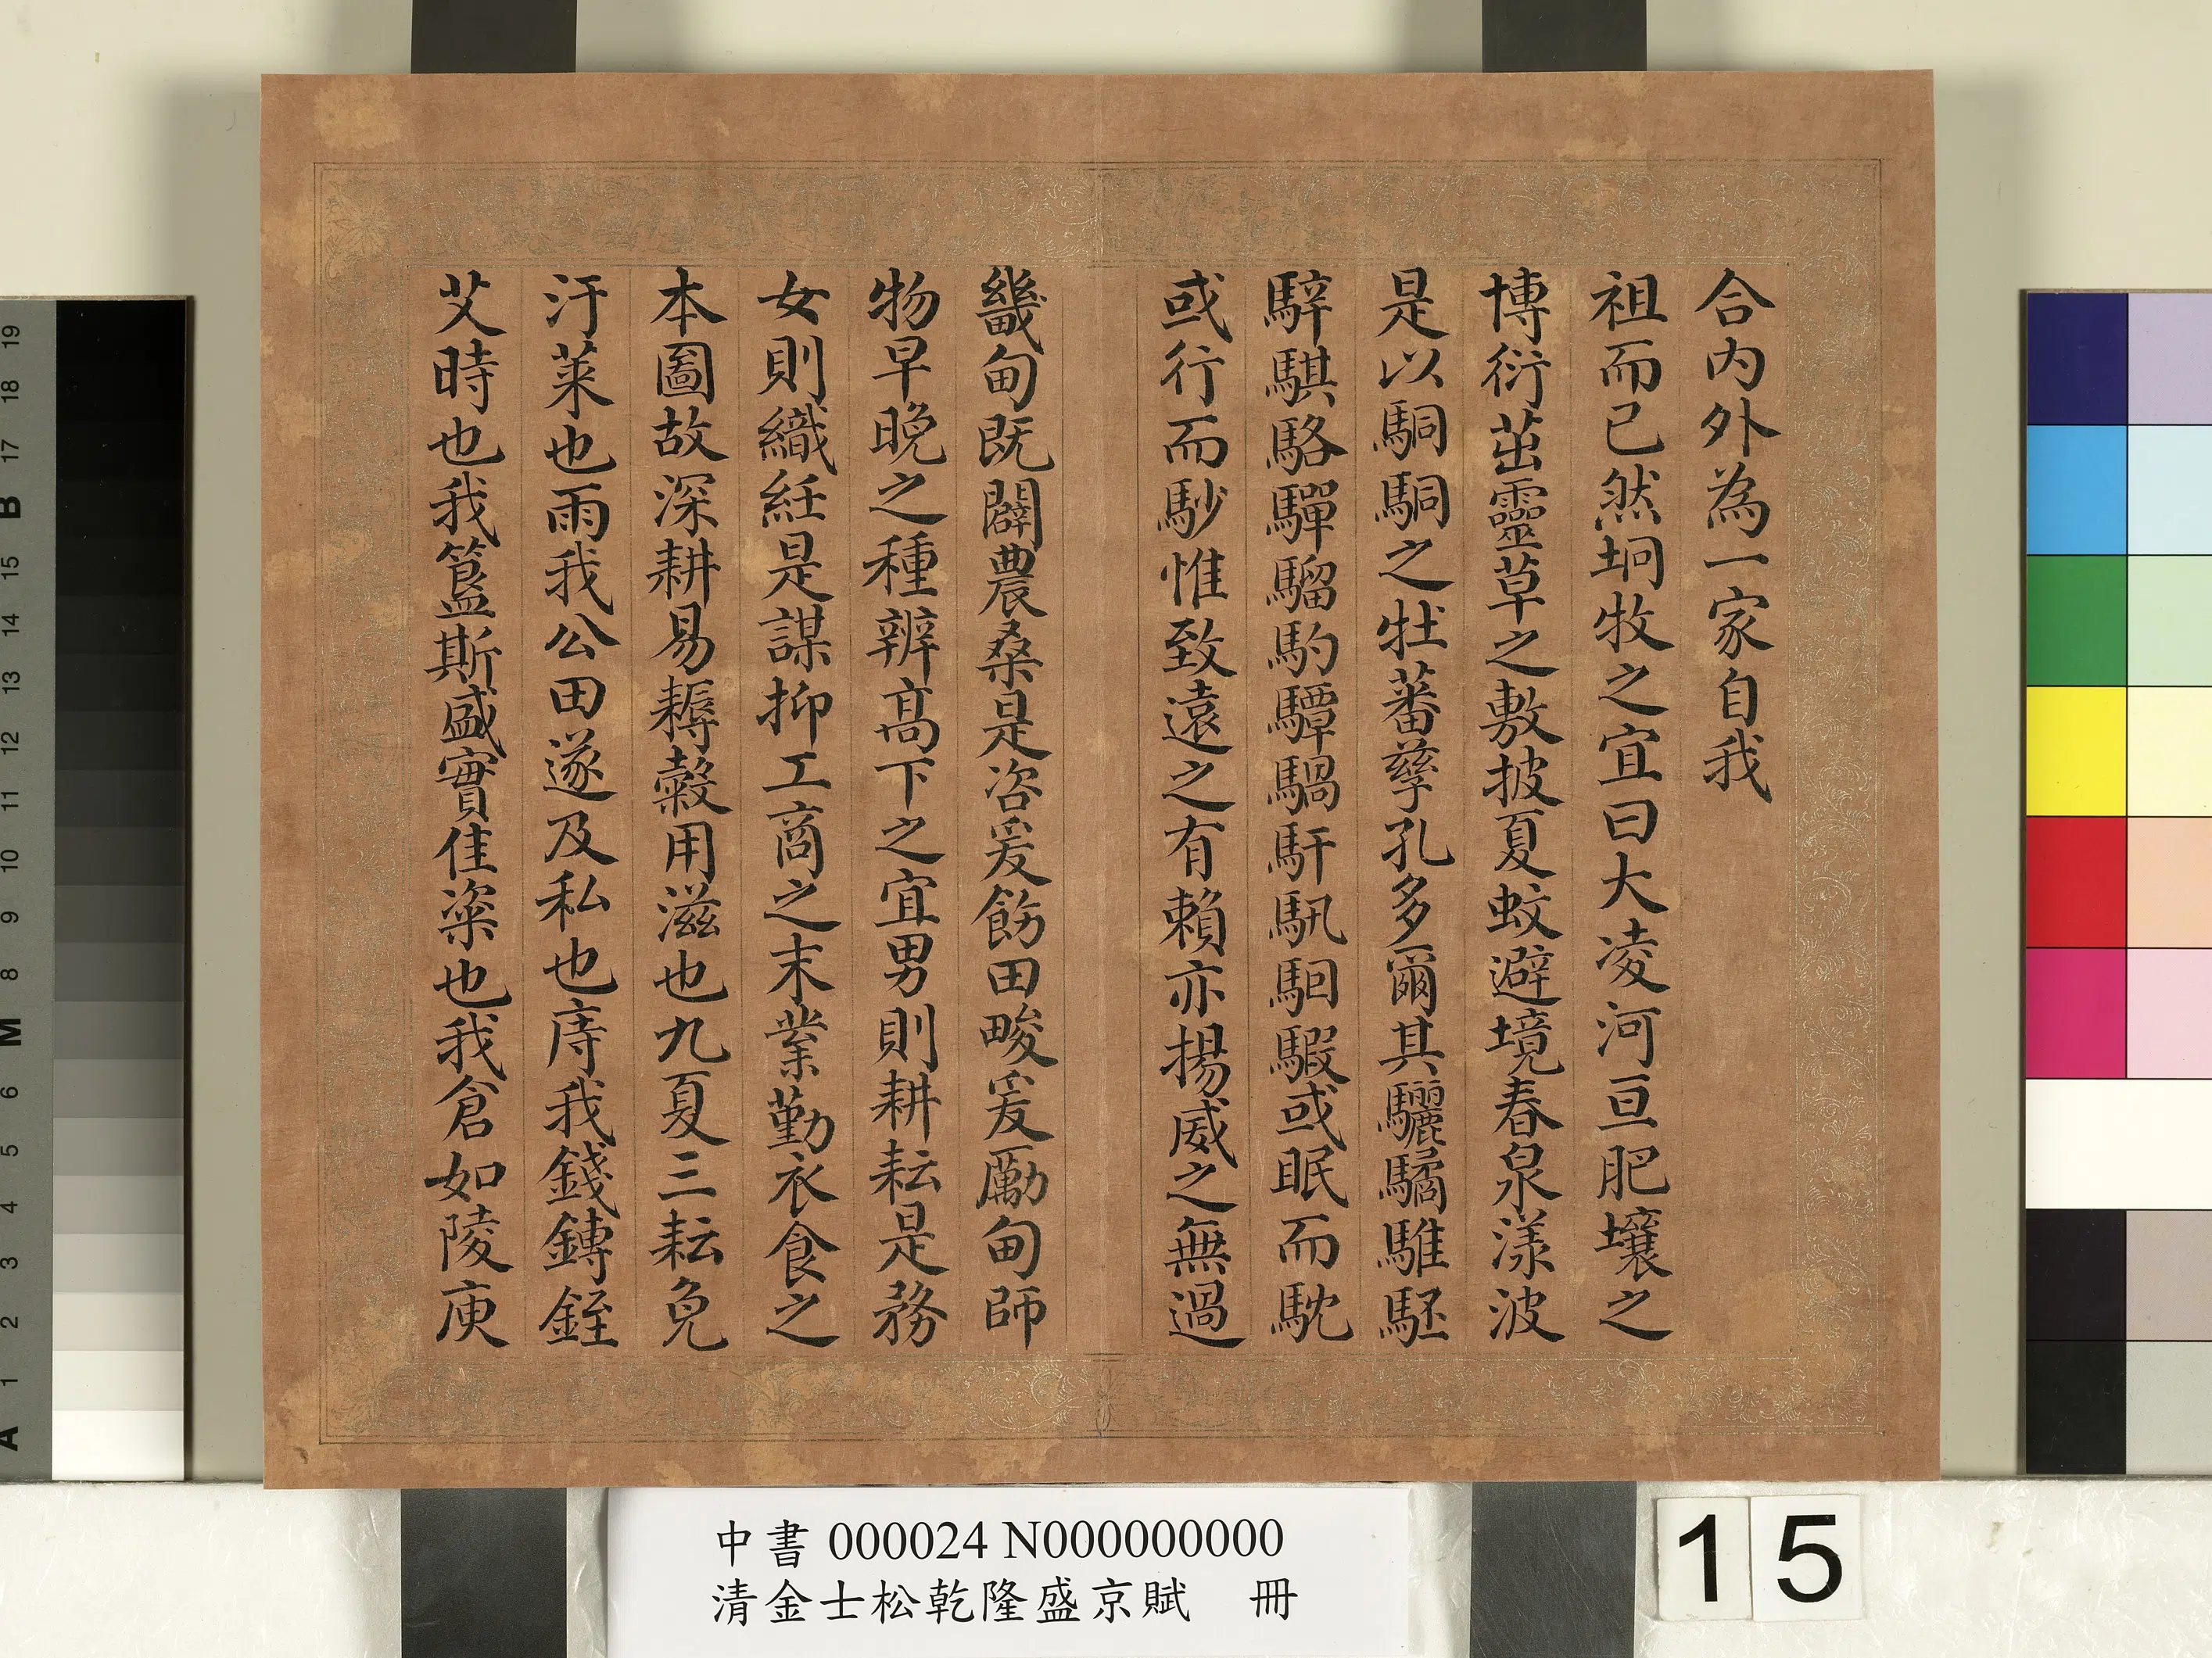 合內外為一家自我
祖而已然坰牧之宜曰大凌河亘肥壤之
博衍茁靈草之敷披夏蚊避境春泉漾波
是以駧駧之牡蕃孳孔多爾其驪驈騅駓
騂騏駱驒騮馰驔騧馯馴駰騢或眠而馾
或行而䯯惟致遠之有賴亦揚威之無過
畿甸既闢農桑是咨爰飭田畯爰勵甸師
物早晚之種辨高下之宜男則耕耘是務
女則織絍是謀抑工商之末業勤衣食之
本圖故深耕易耨榖用滋也九夏三耘免
汙萊也雨我公田遂及私也庤我錢鎛銍
艾時也我簋斯盛實佳粢也我倉如陵庾
中書 000024 N000000000
清金士松乾隆盛京賦 冊
15
19
18
17
B
15
14
13
12
11
10
9
8
M
6
5
4
3
2
1
A